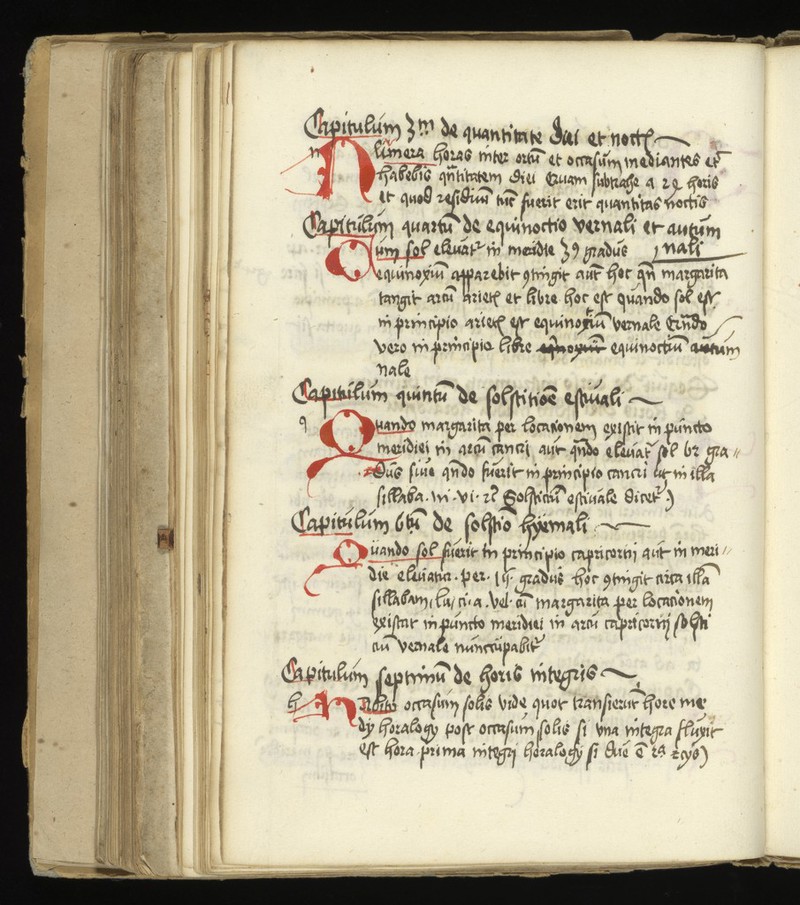 Capitulum 3m de quantitate diei et noctis
Numera horas inter ortū et occasum mediantes et
habebis qntitatem diei quam subtrahe a 24 horis
et quod residuū tūc fuerit erit quantitas noctis
Capitulum quartū de equinoctio vernali et autum
nali
Cum sol elevatr in meridie 39 gradus
equinoxium apparebit 9tingit aut hoc qn margarita
tangit arcū arietis et libre hoc est quando sol est
in principio arietis est equinoxium vernale
vero in principio libre equinoctiū autum
nale
Capitulum quintū de solstitioē estivali
Quando margarita per locationem existit in puncto
meridiei in arcu cancri aut qndo elevatr sol gra
dus sive qndo fuerit in principio cancri in illa
sillaba Solsticiū estivale dicetr
Capitulum 6tū de solstio hyemali
Quando sol fuerit in principio capricorni aut in meri
die elevatur per gradus hoc 9tingit circa illā
sillabam la ci a vel cū margarita per locationem
existat in puncto meridiei in arcu capricorni solsti
ciū vernale nuncupabitr
Capitulum septimū de horis integris
occasum solis vide quot transierūt hore me
dy horalogy post occasum solis si una integra fluxit
est hora prima integri horalogy si due ē